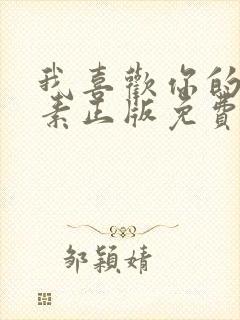 我喜歡你的
素正版免費
邹穎婧